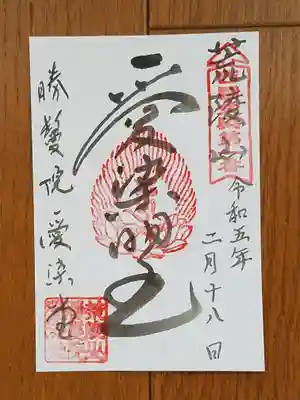 荒陵山
令和五年
二月十八日
愛染明王
勝鬘院愛染堂